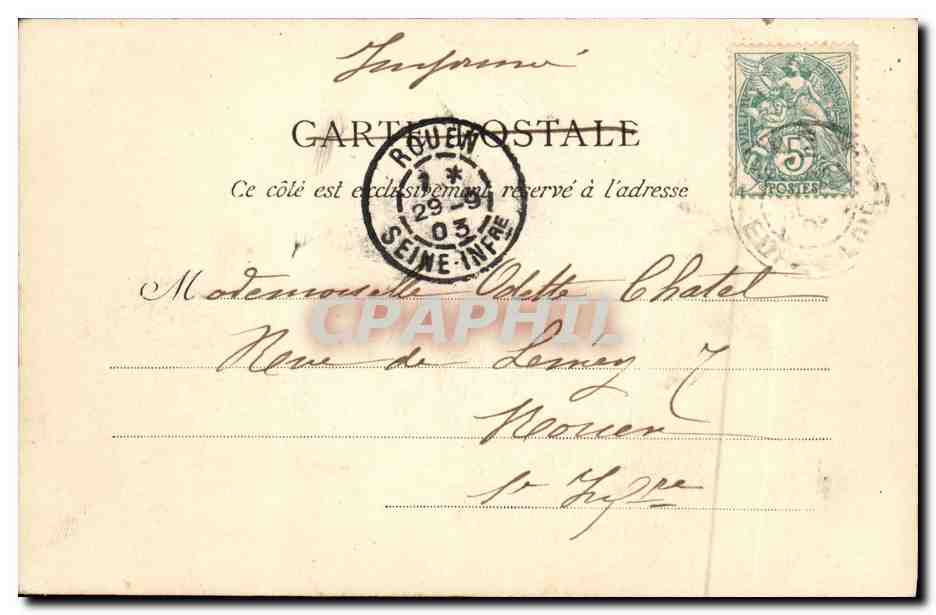 Imprimé
CARTE POSTALE
Ce côté est exclusivement réservé à l'adresse
5
POSTES
ROUEN
1 *
29-9
03
SEINE-INFRE
Mademoiselle Odette Chatel
CPAPHIL
Rue de Lémery 7
Rouen
Se Infre